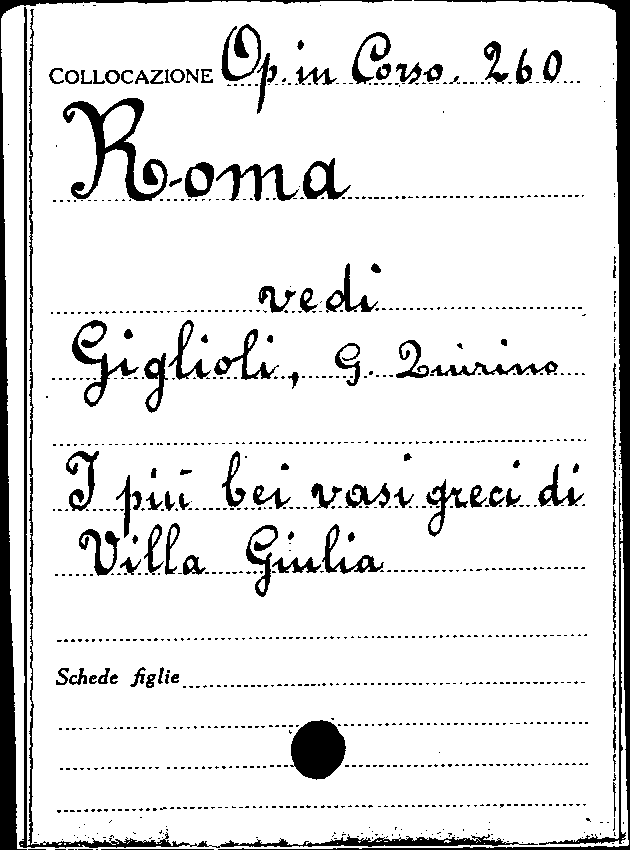 COLLOCAZIONE Op. in Corso. 260
Roma
vedi
Giglioli, G. Quirino
I più bei vasi greci di
Villa Giulia
Schede figlie